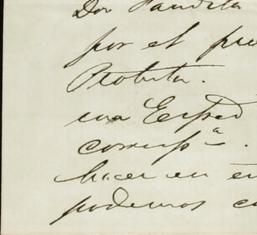 Don Pandita
por el pre
Protesta.
una Exped
corresp.ª
hacer en e
podemos co